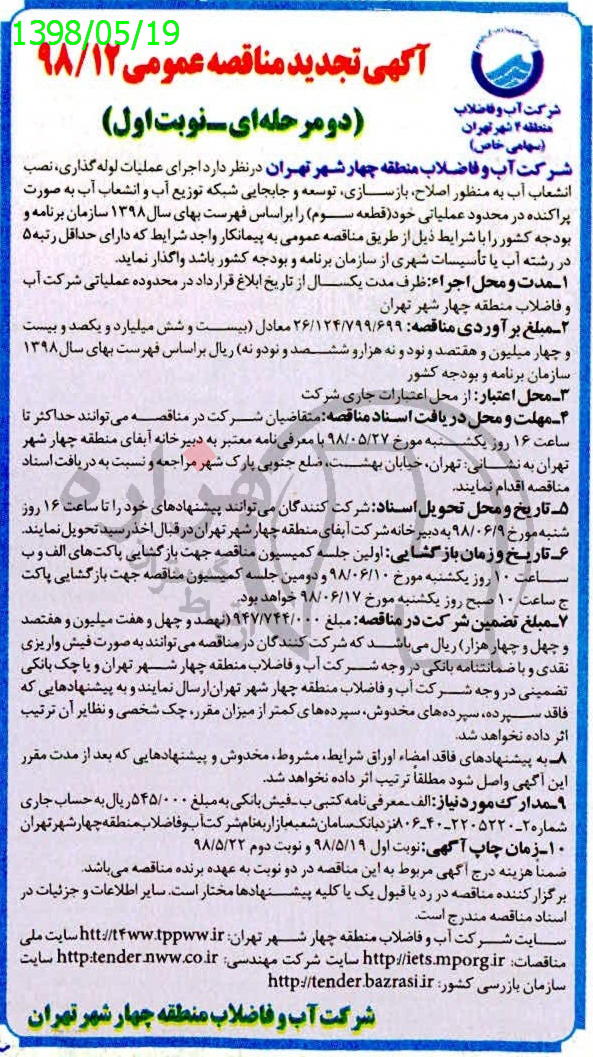 1398/05/19
آگهی تجدید مناقصه عمومی ۹۸/۱۲
(دو مرحله‌ای ـ نوبت اول)
شرکت آب و فاضلاب
منطقه ۴ شهر تهران
(سهامی خاص)
شرکت آب و فاضلاب منطقه چهار شهر تهران در نظر دارد اجرای عملیات لوله گذاری، نصب
انشعاب آب به منظور اصلاح، بازسازی، توسعه و جابجایی شبکه توزیع آب و انشعاب آب به صورت
پراکنده در محدود عملیاتی خود (قطعه سوم) را براساس فهرست بهای سال ۱۳۹۸ سازمان برنامه و
بودجه کشور را با شرایط ذیل از طریق مناقصه عمومی به پیمانکار واجد شرایط که دارای حداقل رتبه ۵
در رشته آب یا تأسیسات شهری از سازمان برنامه و بودجه کشور باشد واگذار نماید.
۱ـ مدت و محل اجراء: ظرف مدت یکسال از تاریخ ابلاغ قرارداد در محدوده عملیاتی شرکت آب
و فاضلاب منطقه چهار شهر تهران
۲ـ مبلغ برآوردی مناقصه: ۲۶/۱۲۴/۷۹۹/۶۹۹ معادل (بیست و شش میلیارد و یکصد و بیست
و چهار میلیون و هفتصد و نود و نه هزار و ششصد و نود و نه) ریال براساس فهرست بهای سال ۱۳۹۸
سازمان برنامه و بودجه کشور
۳ـ محل اعتبار: از محل اعتبارات جاری شرکت
۴ـ مهلت و محل دریافت اسناد مناقصه: متقاضیان شرکت در مناقصه می‌توانند حداکثر تا
ساعت ۱۶ روز یکشنبه مورخ ۹۸/۰۵/۲۷ با معرفی نامه معتبر به دبیرخانه آبفای منطقه چهار شهر
تهران به نشانی: تهران، خیابان بهشت، ضلع جنوبی پارک شهر مراجعه و نسبت به دریافت اسناد
مناقصه اقدام نمایند.
۵ـ تاریخ و محل تحویل اسناد: شرکت کنندگان می‌توانند پیشنهادهای خود را تا ساعت ۱۶ روز
شنبه مورخ ۹۸/۰۶/۹ به دبیرخانه شرکت آبفای منطقه چهار شهر تهران در قبال اخذ رسید تحویل نمایند.
۶ـ تاریخ و زمان بازگشایی: اولین جلسه کمیسیون مناقصه جهت بازگشایی پاکت‌های الف و ب
ساعت ۱۰ روز یکشنبه مورخ ۹۸/۰۶/۱۰ و دومین جلسه کمیسیون مناقصه جهت بازگشایی پاکت
ج ساعت ۱۰ صبح روز یکشنبه مورخ ۹۸/۰۶/۱۷ خواهد بود.
۷ـ مبلغ تضمین شرکت در مناقصه: مبلغ ۹۴۷/۷۴۴/۰۰۰ (نهصد و چهل و هفت میلیون و هفتصد
و چهل و چهار هزار) ریال می‌باشد که شرکت کنندگان در مناقصه می‌توانند به صورت فیش واریزی
نقدی و با ضمانتنامه بانکی در وجه شرکت آب و فاضلاب منطقه چهار شهر تهران و یا چک بانکی
تضمینی در وجه شرکت آب و فاضلاب منطقه چهار شهر تهران ارسال نمایند و به پیشنهادهایی که
فاقد سپرده، سپرده‌های مخدوش، سپرده‌های کمتر از میزان مقرر، چک شخصی و نظایر آن ترتیب
اثر داده نخواهد شد.
۸ـ به پیشنهادهای فاقد امضاء اوراق شرایط، مشروط، مخدوش و پیشنهادهایی که بعد از مدت مقرر
این آگهی واصل شود مطلقاً ترتیب اثر داده نخواهد شد.
۹ـ مدارک مورد نیاز: الف ـ معرفی نامه کتبی ب ـ فیش بانکی به مبلغ ۵۴۵/۰۰۰ ریال به حساب جاری
شماره ۲ـ۲۲۰۵۲۲۰ـ۴۰ـ۸۰۶ نزد بانک سامان شعبه بازار به نام شرکت آب و فاضلاب منطقه چهار شهر تهران
۱۰ـ زمان چاپ آگهی: نوبت اول ۹۸/۵/۱۹ و نوبت دوم ۹۸/۵/۲۲
ضمناً هزینه درج آگهی مربوط به این مناقصه در دو نوبت به عهده برنده مناقصه می‌باشد.
برگزار کننده مناقصه در رد یا قبول یک یا کلیه پیشنهادها مختار است. سایر اطلاعات و جزئیات در
اسناد مناقصه مندرج است.
سایت شرکت آب و فاضلاب منطقه چهار شهر تهران: htt://t۴ww.tppww.ir سایت ملی
مناقصات: http://iets.mporg.ir سایت شرکت مهندسی: http:tender.nww.co.ir سایت
سازمان بازرسی کشور: http://tender.bazrasi.ir
شرکت آب و فاضلاب منطقه چهار شهر تهران